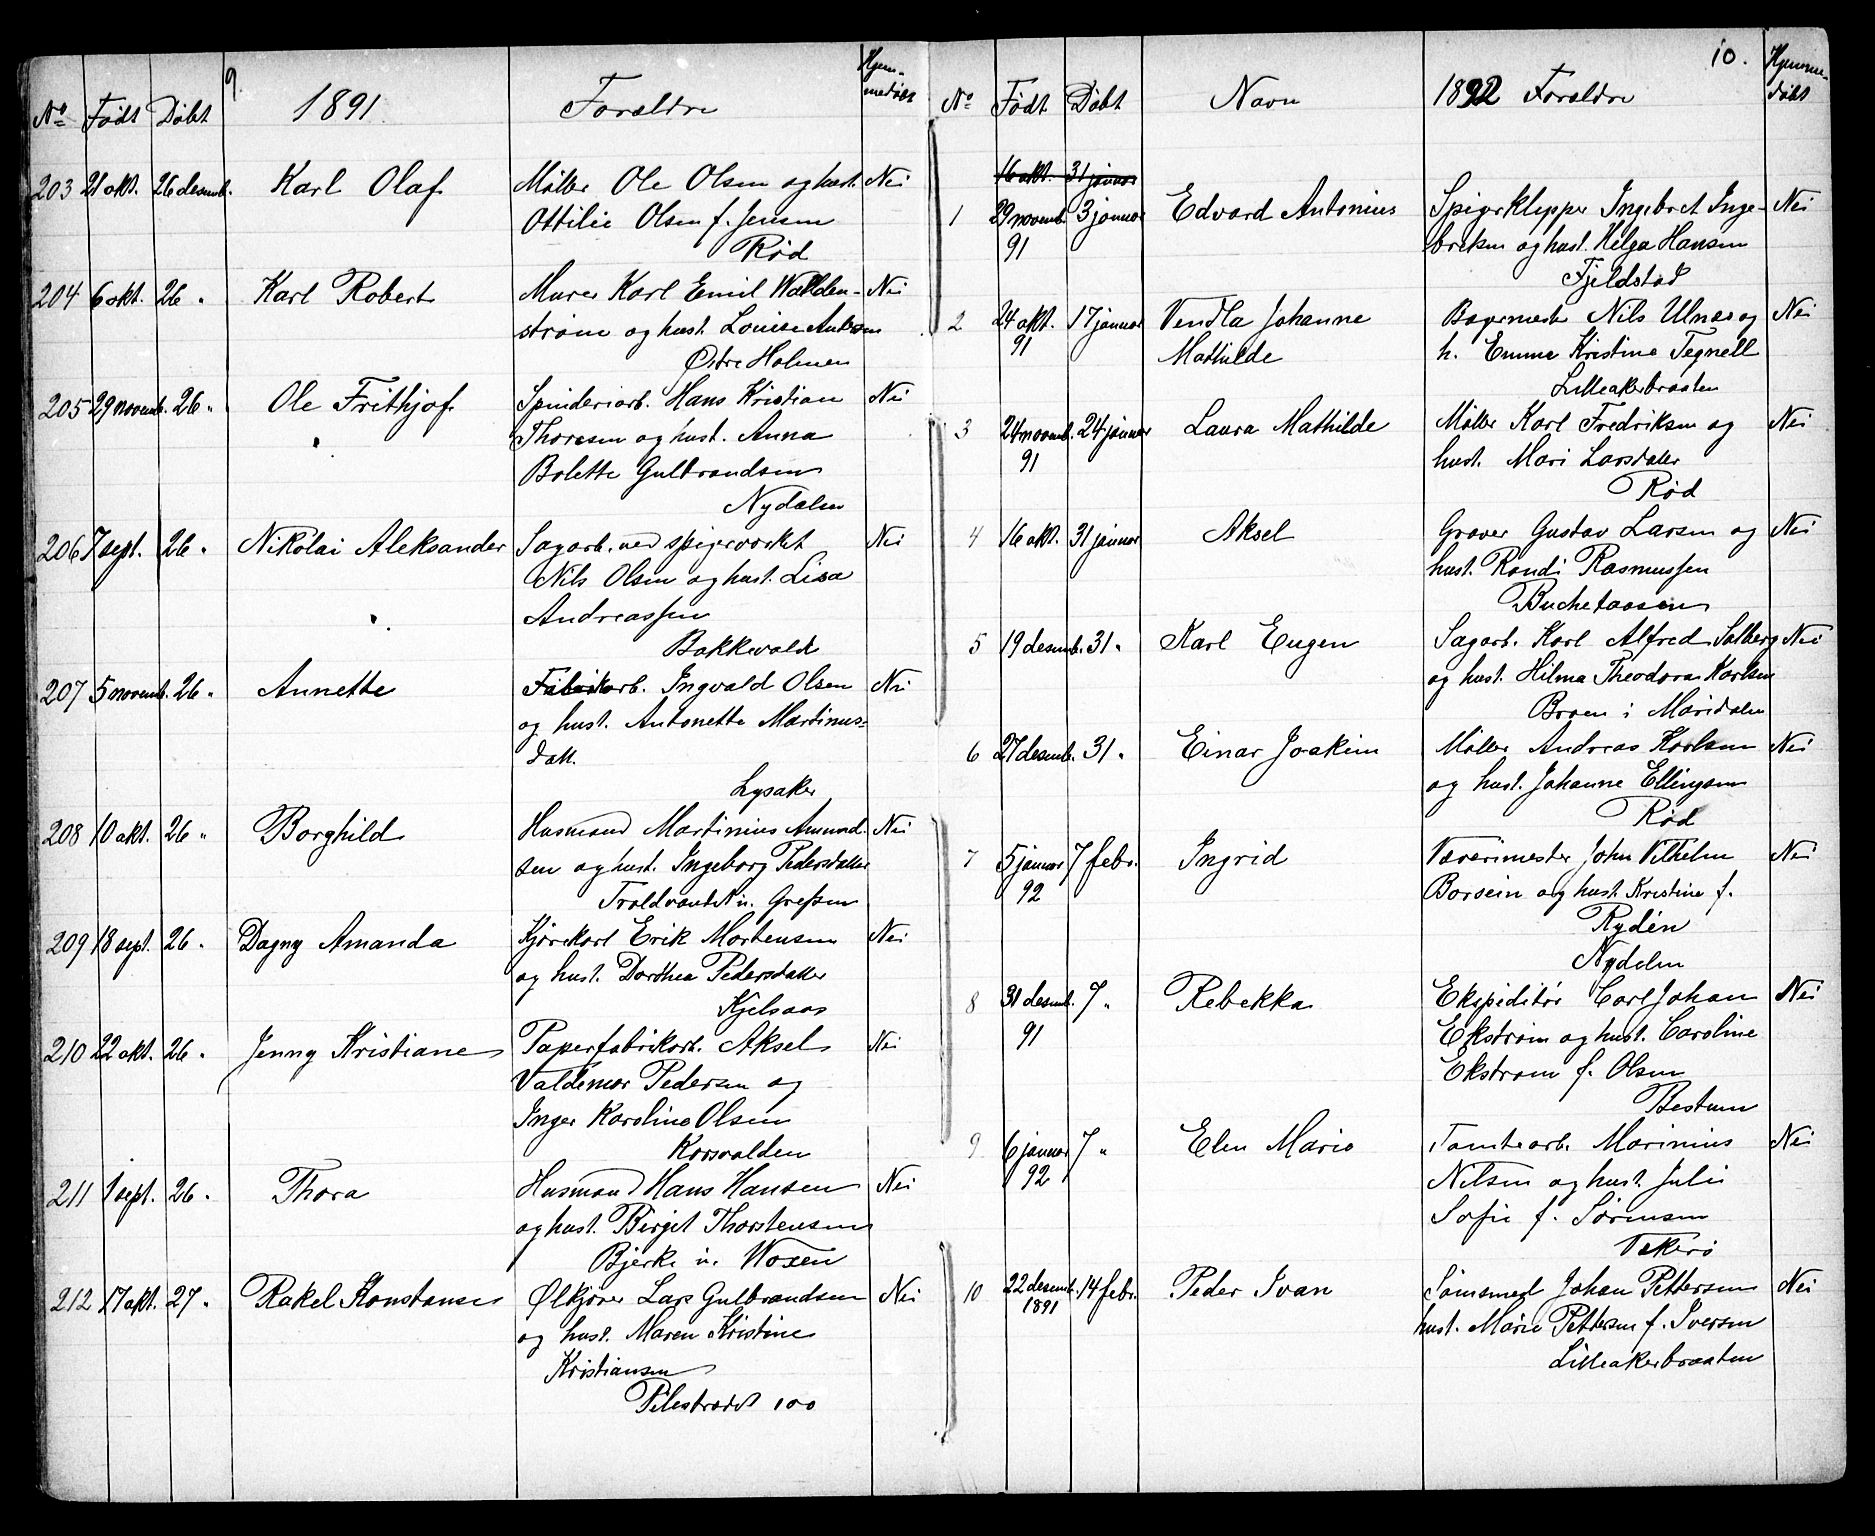 9
No Født Døbt 1891 Forældre Hjem-
medøbt
203 21 okt. 26 desemb. Karl Olaf Møller Ole Olsen og hust. Nei
Ottilie Olsen f. Jensen
Rød
204 6 okt. 26 " Karl Robert Murer Karl Emil Walden- Nei
strøm og hust. Louise Andersen
Østre Holmen
205 29 novemb. 26 " Ole Frithjof Spinderiarb. Hans Kristian Nei
Thoresen og hust. Anna
Bolette Gulbrandsen
Nydalen
206 7 sept. 26 " Nikolai Aleksander Sagarb. ved spigerverket Nei
Nils Olsen og hust. Lisa
Andreassen
Bakkevold
207 5 novemb. 26 " Annette Fabrikarb. Ingvald Olsen Nei
og hust. Antonette Martinus-
datt.
Lysaker
208 10 okt. 26 " Borghild Husmand Martinius Amund- Nei
sen og hust. Ingeborg Pedersdatter
Troldvandet u. Grefsen
209 18 sept. 26 " Dagny Amanda Kjørekarl Erik Mortensen Nei
og hust. Dorthea Pedersdatter
Kjelsaas
210 22 okt. 26 " Jenny Kristiane Paperfabrikarb. Aksel Nei
Valdemar Pedersen og
Inger Karoline Olsen
Korsvolden
211 1 sept. 26 " Thora Husmand Hans Hansen Nei
og hust. Birgit Thorstensen
Bjerke u. Woxen
212 17 okt. 27 " Rakel Konstanse Ølkjører Lars Gulbrandsen Nei
og hust. Maren Kristine
Kristiansen
Pilestrædet 100
10.
No Født Døbt Navn 1892 Forældre Hjemme-
døbt
16 okt. 31 januar
1 29 novemb. 3 januar Edvard Antonius Spigerklipper Ingebret Inge- Nei
91 bretsen og hust. Helga Hansen
Fjeldstad
2 24 okt. 17 januar Vendla Johanne Bagermester Nils Ulnæs og Nei
91 Mathilde h. Emma Kristina Tegnell
Lilleakerbraaten
3 24 novemb. 24 januar Laura Mathilde Møller Karl Fredriksen og Nei
91 hust. Mari Larsdatter
Rød
4 16 okt. 31 januar Aksel Graver Gustav Larsen og Nei
hust. Randi Rasmussen
Buchetaasen
5 19 desemb. 31 " Karl Eugen Sagarb. Karl Alfred Solberg Nei
og hust. Hilma Theodora Karlsen
Braen i Maridalen
6 27 desemb. 31 " Einar Joakim Møller Andreas Karlsen Nei
og hust. Johanne Ellingsen
Rød
7 5 januar 7 febr. Ingrid Væverimester John Vilhelm Nei
92 Borsein og hust. Kristine f.
Rydén
Nydalen
8 31 desemb. 7 " Rebekka Ekspeditør Carl Johan Nei
91 Ekstrøm og hust. Caroline
Ekstrøm f. Olsen
Bestum
9 6 januar 7 " Elen Marie Tomtearb. Marinius Nei
92 Nilsen og hust. Julie
Sofie f. Sørensen
Vækerø
10 22 desemb. 14 febr. Peder Ivan Sømsmed Johan Pettersen Nei
1891 hust. Marie Pettersen f. Iversen
Lilleakerbraaten